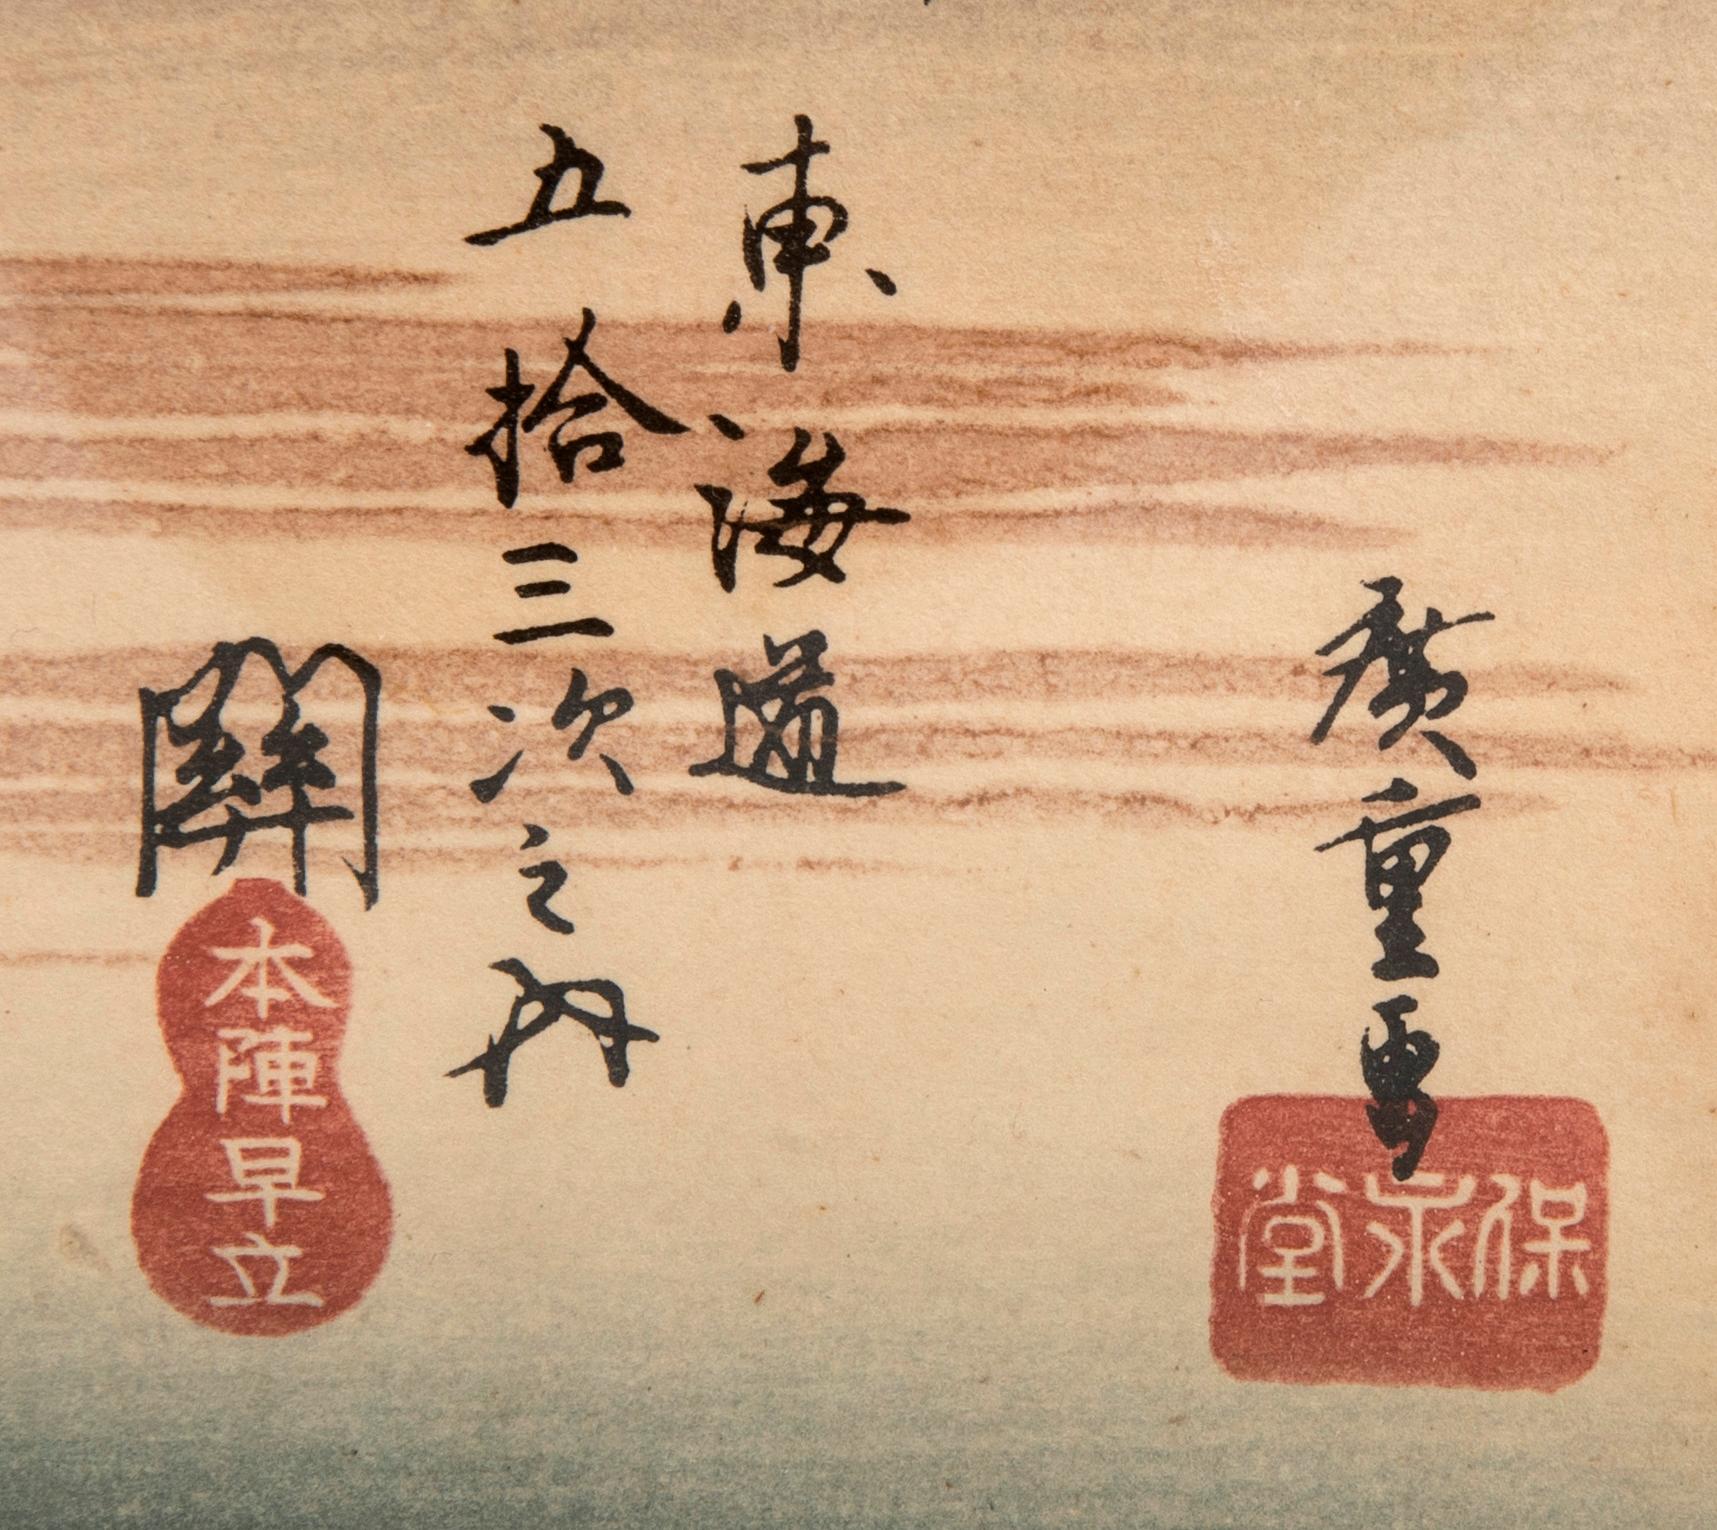 廣重畫
保永堂
東海道
五拾三次之内
關
本陣早立